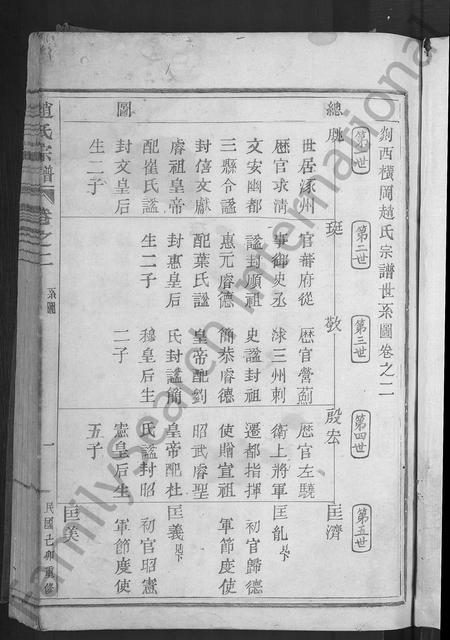 剡西橫岡趙氏宗譜世系圖卷之二
第一世
第二世
第三世
第四世
第五世
總
圖
眺
世居涿州
歷官永清
文安幽都
三縣令謚
封僖文獻
睿祖皇帝
配崔氏謚
封文皇后
生二子
珽
官藩府從
事御史丞
謚封順祖
惠元睿德
配葉氏謚
封惠皇后
生二子
敬
歷官營薊
涿三州刺
史謚封祖
簡恭睿德
皇帝配劉
氏封謚簡
穆皇后生
二子
殷宏
歷官左驍
衛上將軍
遷都指揮
使贈宣祖
昭武睿聖
皇帝配杜
氏謚封昭
憲皇后生
五子
匡濟
匡胤見下
初官歸德
軍節度使
匡義見下
初官昭憲
軍節度使
匡美
趙氏宗譜
卷之二
系圖
一
民國己卯重修
FamilySearch International